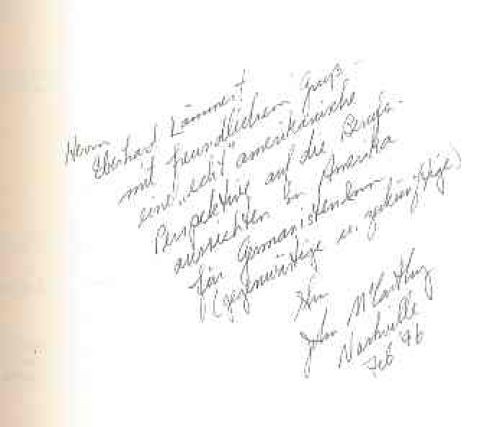 Herrn
Eberhard Lämmert
mit freundlichem Gruß –
eine „echt" amerikanische
Perspektive auf die Berufs-
aussichten in Amerika
für Germanistendom
(gegenwärtige u. zukünftige)
Ihr
John McCarthy
Nashville
Feb '96